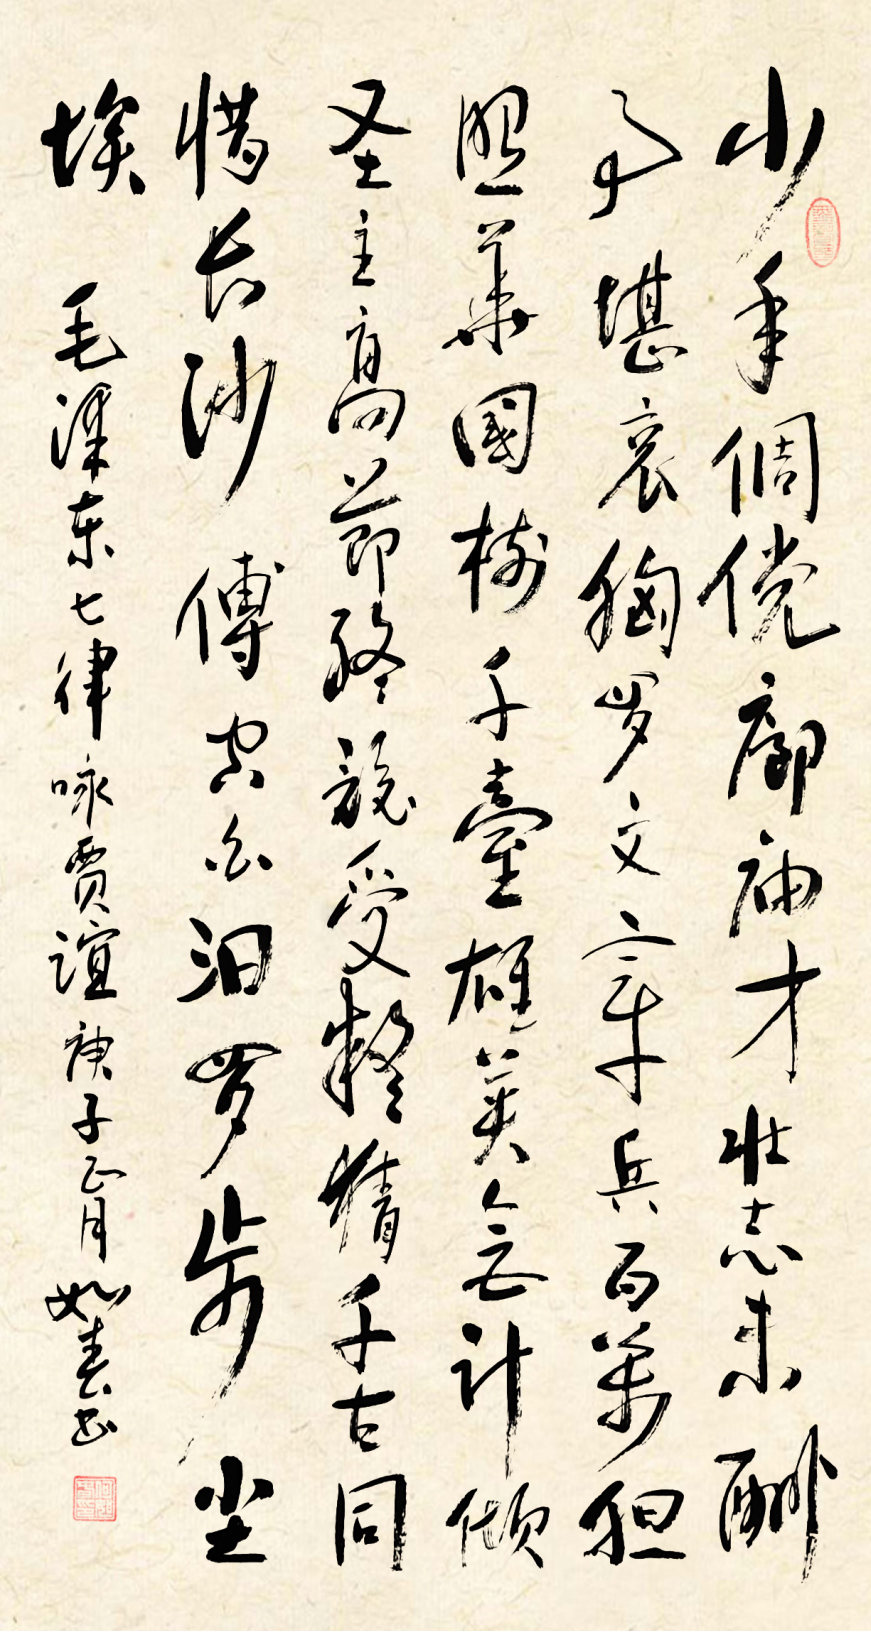 少年倜傥廊庙才壮志未酬
事堪哀胸罗文章兵百萬胆
照華國树千臺雄英無计倾
圣主高節终竞受疑猜千古同
惜长沙傅空白汨罗步尘
埃
毛泽东七律咏贾谊庚子正月如春书